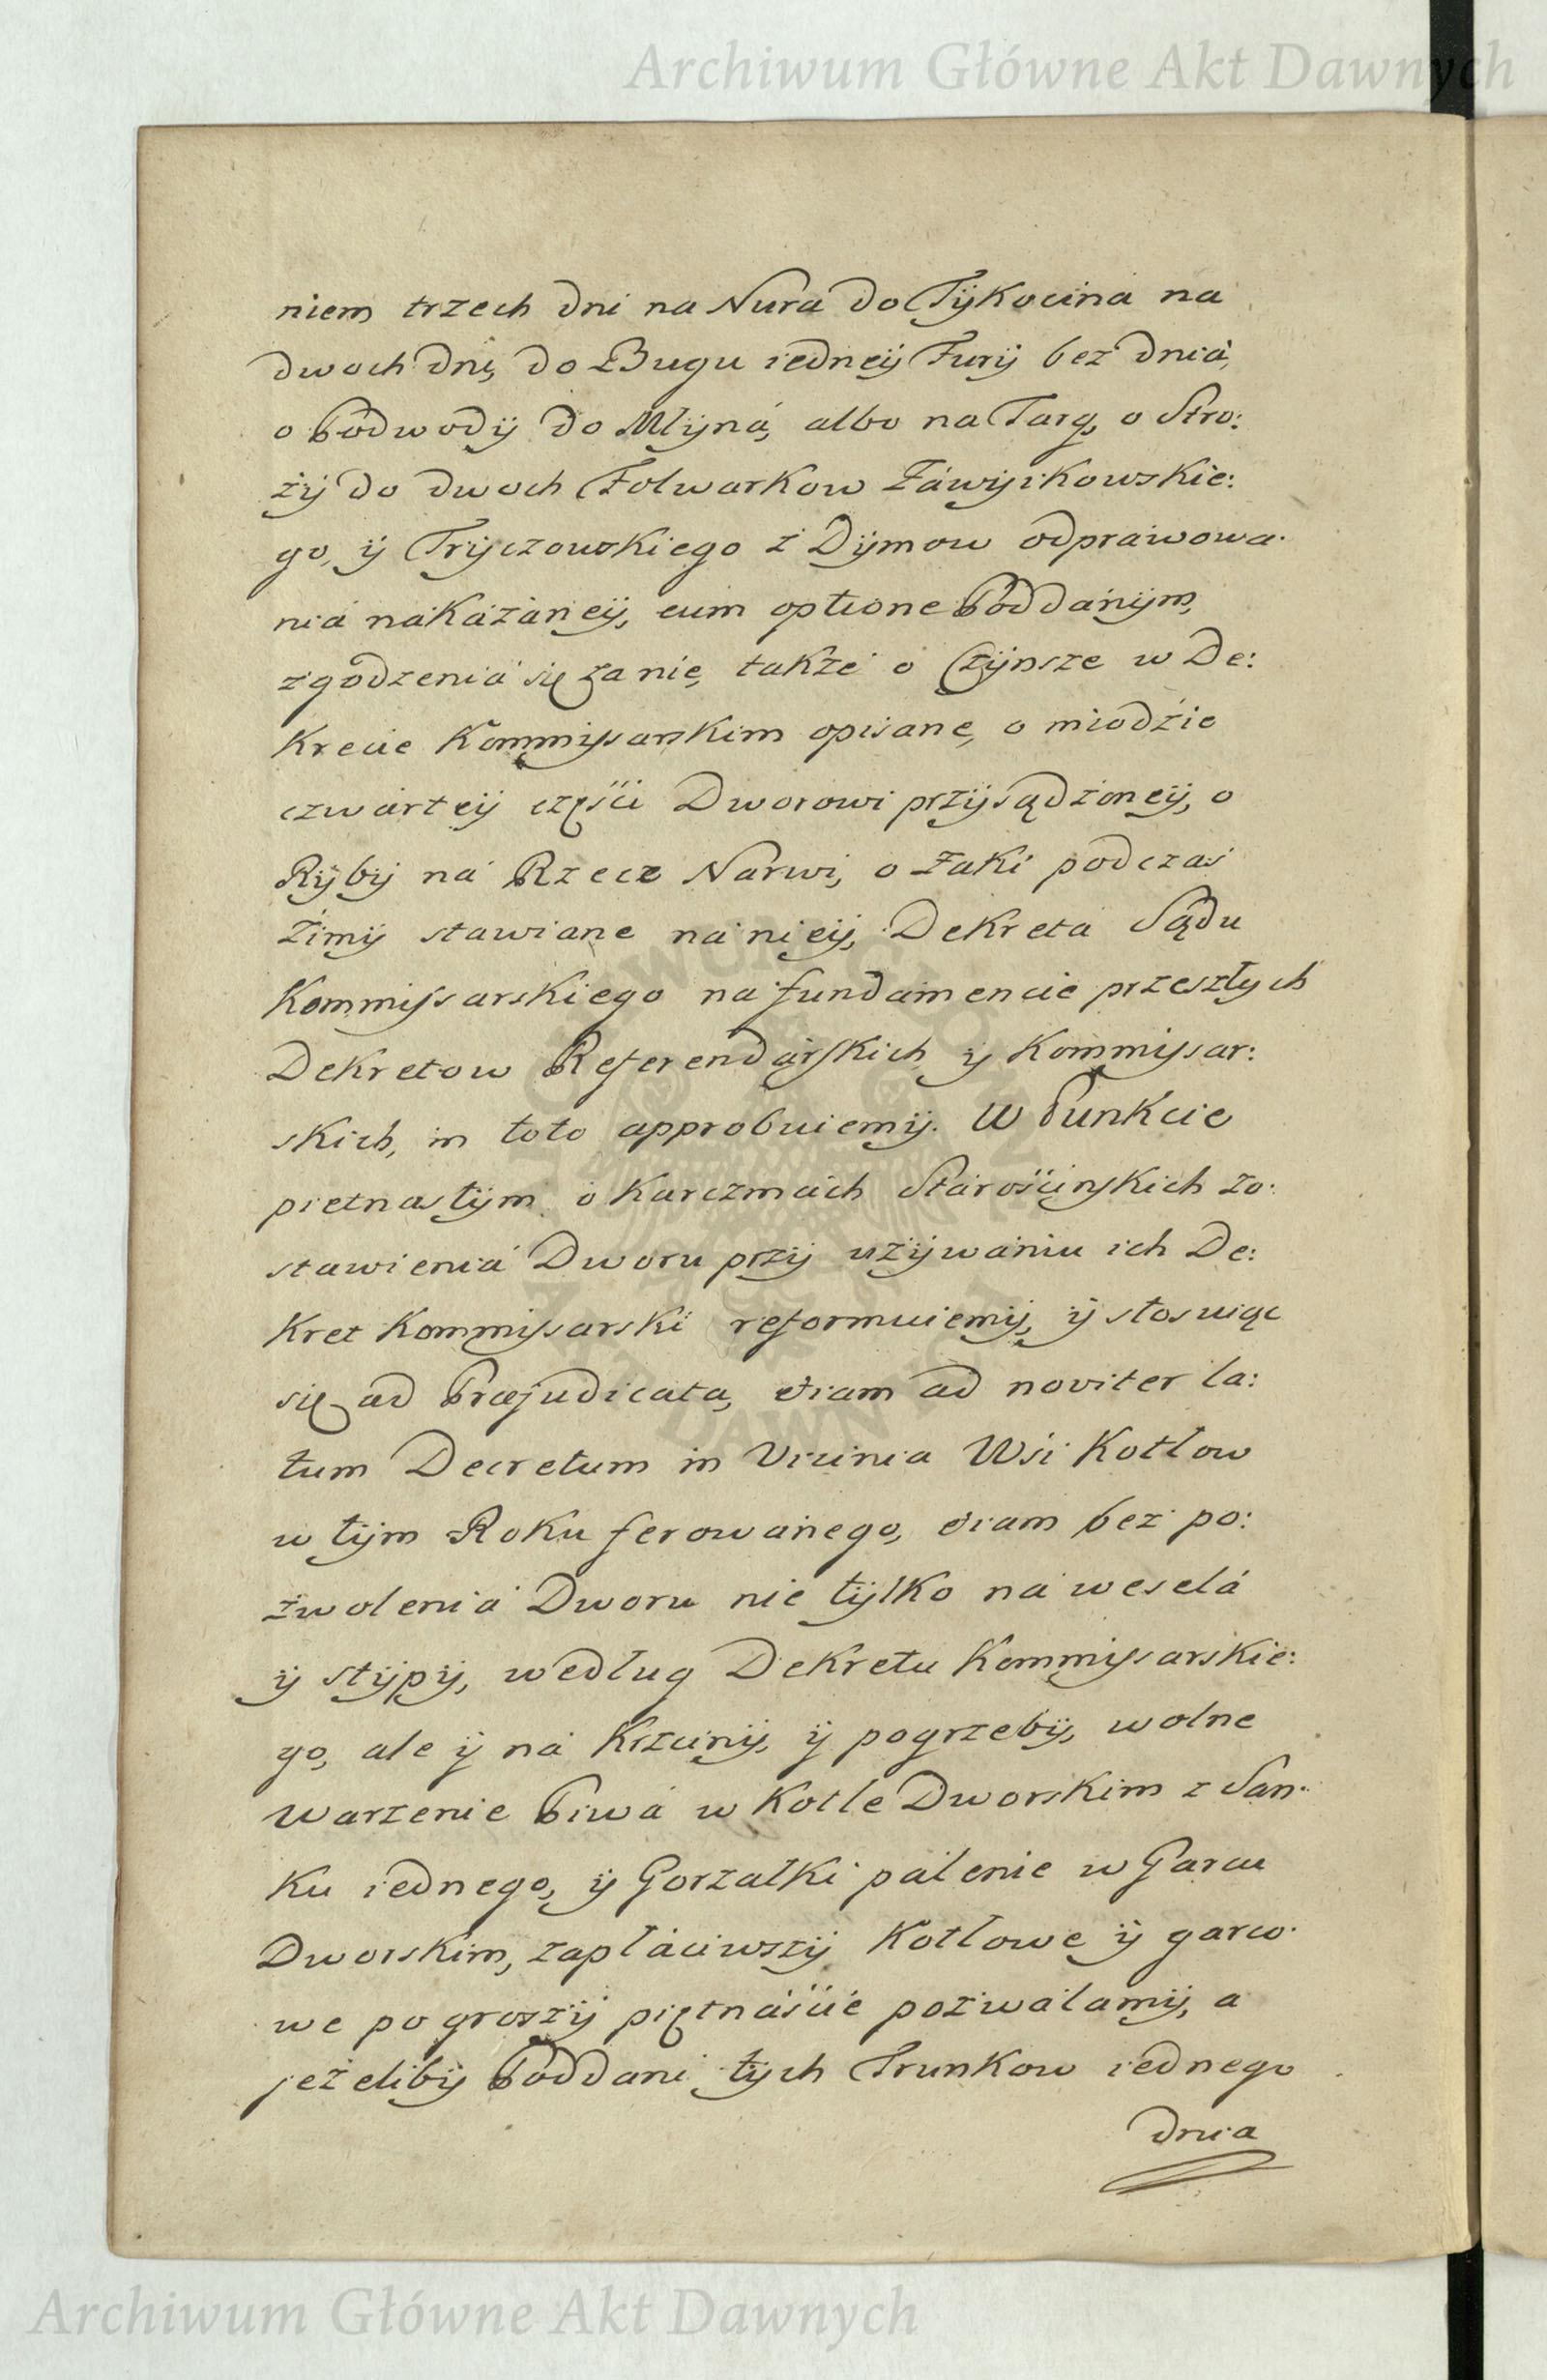 Archiwum Główne Akt Dawnych
niem trzech dni na Nura do Tÿkocina na
dwoch dni, do Bugu iedneÿ Furÿ bez dniá,
o Podwodÿ do Młÿná, albo na Targ, o Stro:
żÿ do dwoch Folwarkow Záwÿkowskie:
go, ÿ Trÿczowskiego z Dÿmow odprawowa:
niá nakázáneÿ, cum optione Poddánÿm,
zgodzeniá się za nie, także o Czÿnsze w De:
krecie Kommissarskim opisane, o miodzie
czwárteÿ części Dworowi przÿsądzoneÿ, o
Rÿbÿ ná Rzece Narwi, o Żaki podczas
Zimÿ stawiane ná nieÿ, Dekretá Sądu
Kommissarskiego na fundamencie przeszłych
Dekretow Referendárskich y Kommissar:
skich, in toto approbuiemÿ. W Punkcie
pietnastÿm o Karczmách Stárościnskich zo:
stawieniá Dworu przÿ użÿwániu ich De:
kret Kommissarski reformuiemÿ, ÿ stosuiąc
się ad Præjudicata, etiam ad noviter la:
tum Decretum in Vicinia Wsi Kotłow
w tÿm Roku ferowánego, etiam bez po:
zwoleniá Dworu nie tÿlko ná weselá
ÿ stÿpÿ, według Dekretu Kommissarskie:
go, ale ÿ ná Krzcinÿ, ÿ pogrzebÿ, wolne
warzenie Piwá w Kotle Dworskim z San:
ku iednego, ÿ Gorzałki pálenie w Garcu
Dworskim, zapłáciwszÿ Kotłowe ÿ garco:
we po groszÿ piętnáście pozwálamÿ, a
jeżelibÿ Poddani tÿch Trunkow iednego
dnia
Archiwum Główne Akt Dawnych